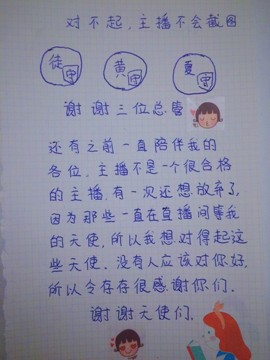 对不起,主播不会截图
徒 守 黄 守 夏 守
谢谢三位总管
还有之前一直陪伴我的
各位,主播不是一个很合格
的主播,有一次还想放弃了,
因为那些一直在直播间等我
的天使,所以我想对得起这
些天使.没有人应该对你好,
所以今存存很感谢你们.
谢谢天使们.